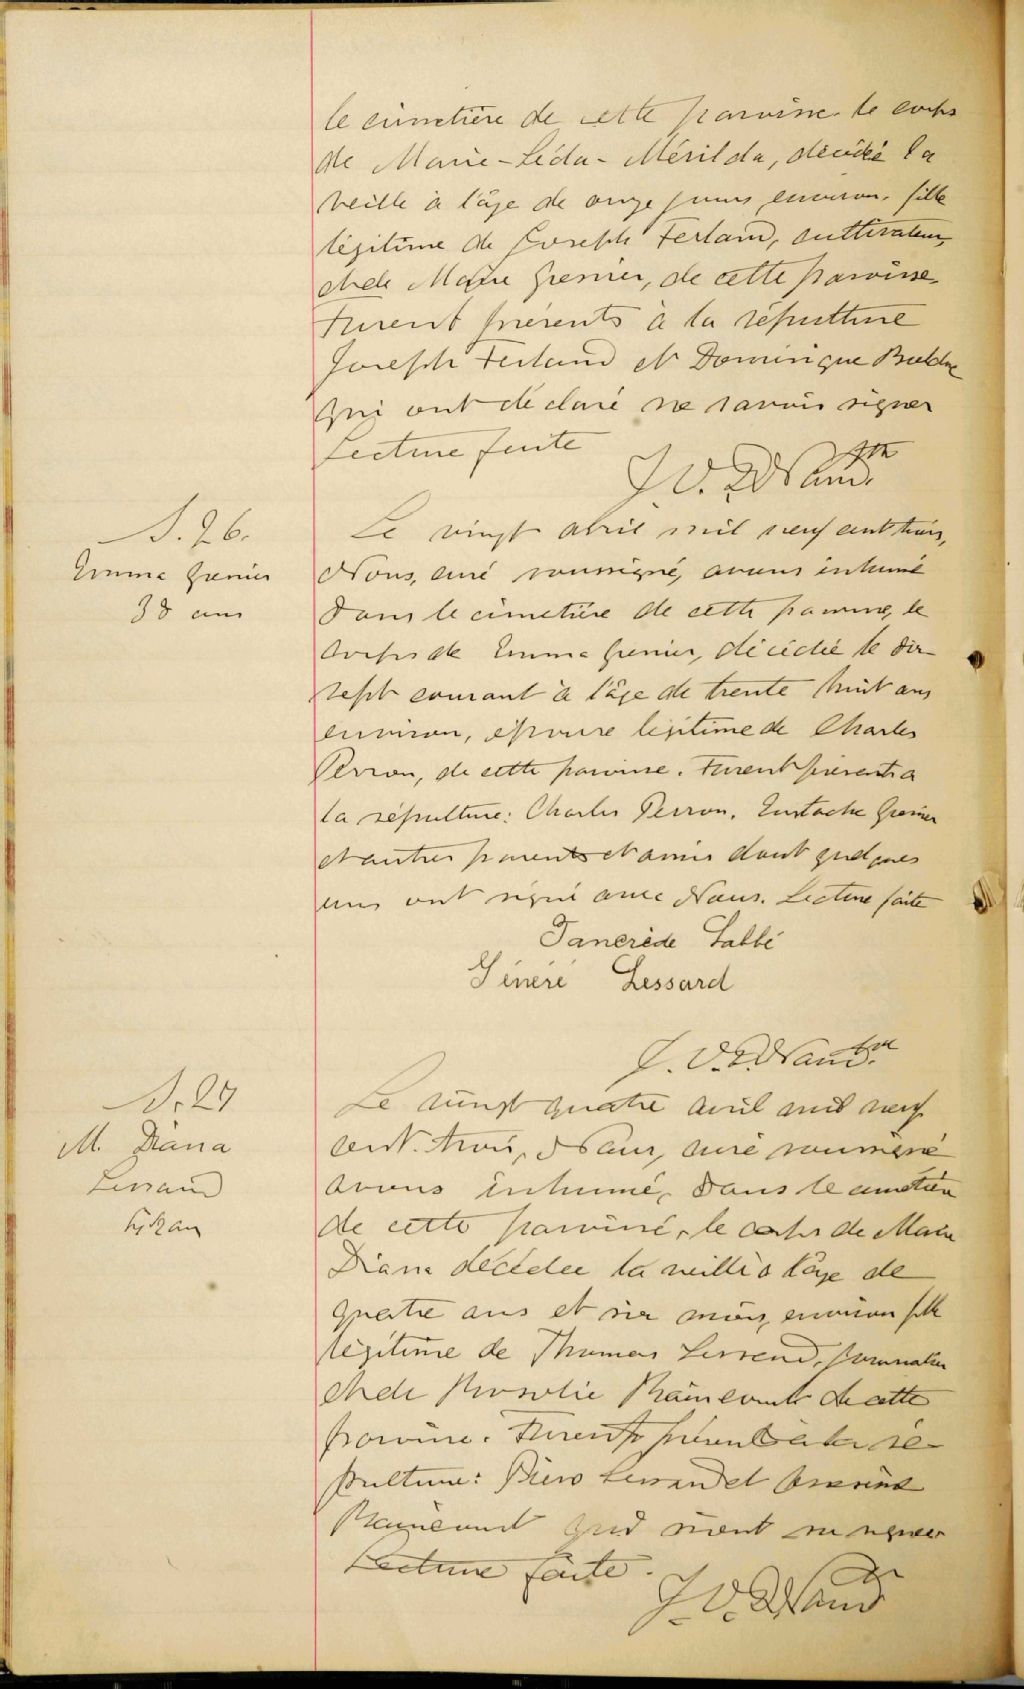 le cimetière de cette paroisse le corps
de Marie-Léda-Mérilda, décédée la
veille à l'âge de onze jours environ, fille
légitime de Joseph Ferland, cultivateur,
et de Marie Grenier, de cette paroisse.
Furent présents à la sépulture
Joseph Ferland et Dominique
qui ont déclaré ne savoir signer
Lecture faite
J. V.
S. 26.
Emma Grenier
38 ans
Le vingt avril mil neuf cent trois,
Nous, curé soussigné, avons inhumé
dans le cimetière de cette paroisse, le
corps de Emma Grenier, décédée le dix
sept courant à l'âge de trente huit ans
environ, épouse légitime de Charles
Perron, de cette paroisse. Furent présents a
la sépulture: Charles Perron, Eustache Grenier
et autres parents et amis dont quelques
uns ont signé avec Nous. Lecture faite
Tancrède Labbé
Généré Lessard
J. V.
S. 27
M. Diana
Lessard
Le vingt quatre avril mil neuf
cent trois, Nous, curé soussigné
avons inhumé, dans le cimetière
de cette paroisse, le corps de Marie
Diana décédée la veille à l'âge de
quatre ans et six mois, environ fille
légitime de Thomas Lessard, journalier
et de Rosalie de cette
paroisse. Furent présents à la sé-
pulture: Lessard et
qui n'ont su signer
Lecture faite.
J. V.